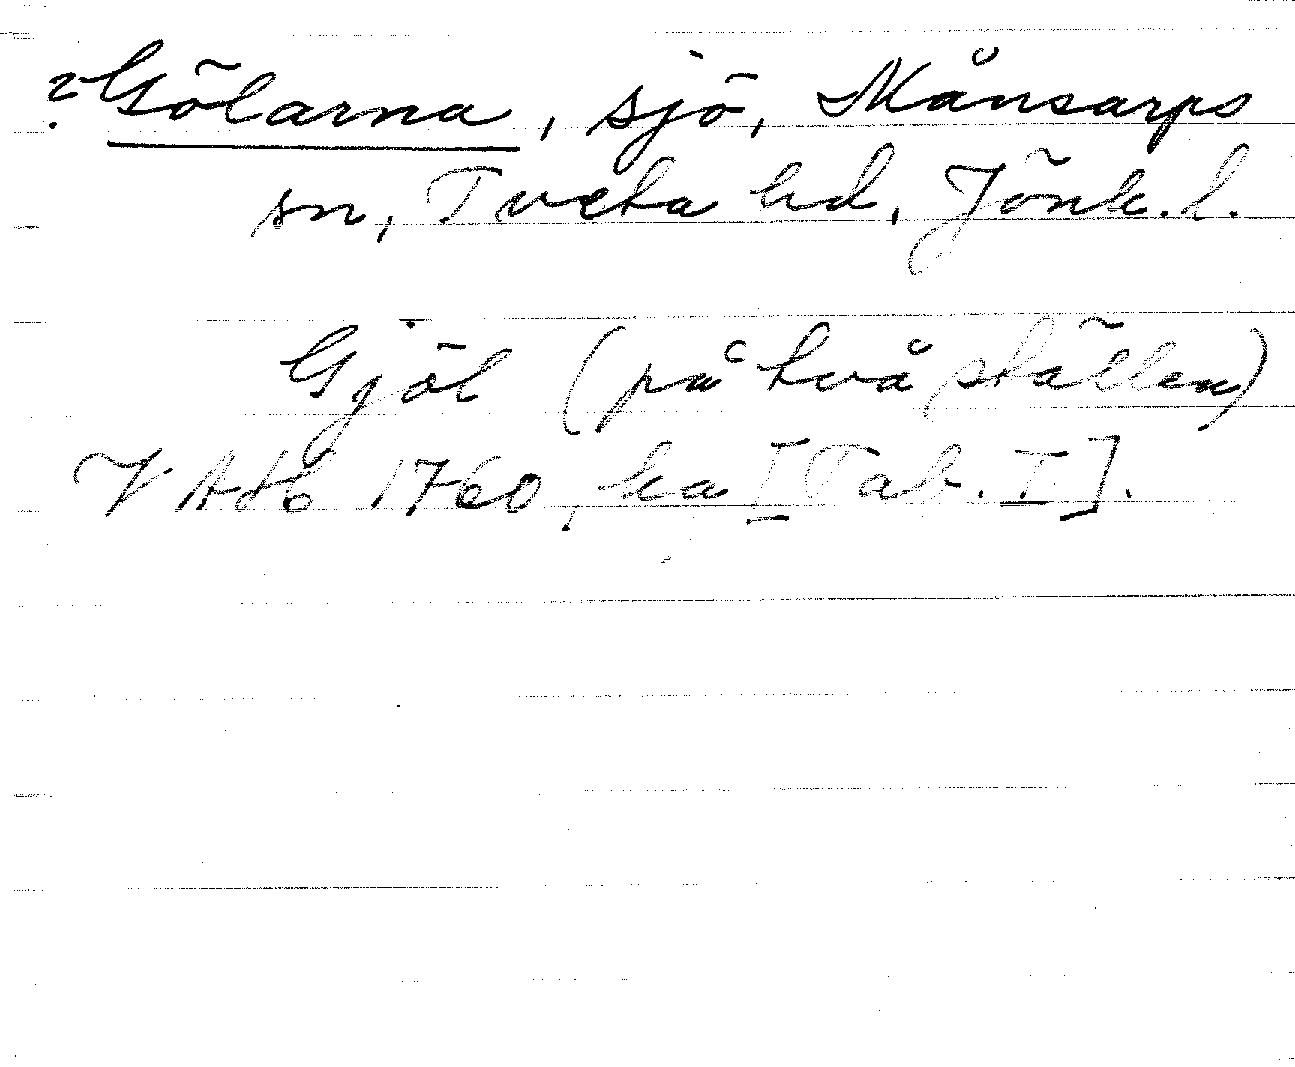 ? Gölarna, sjö, Månsarps
sn, Tveta hd, Jönk. l.
Gjöl (på två ställen)
VAH 1760, ka [Tab. I].